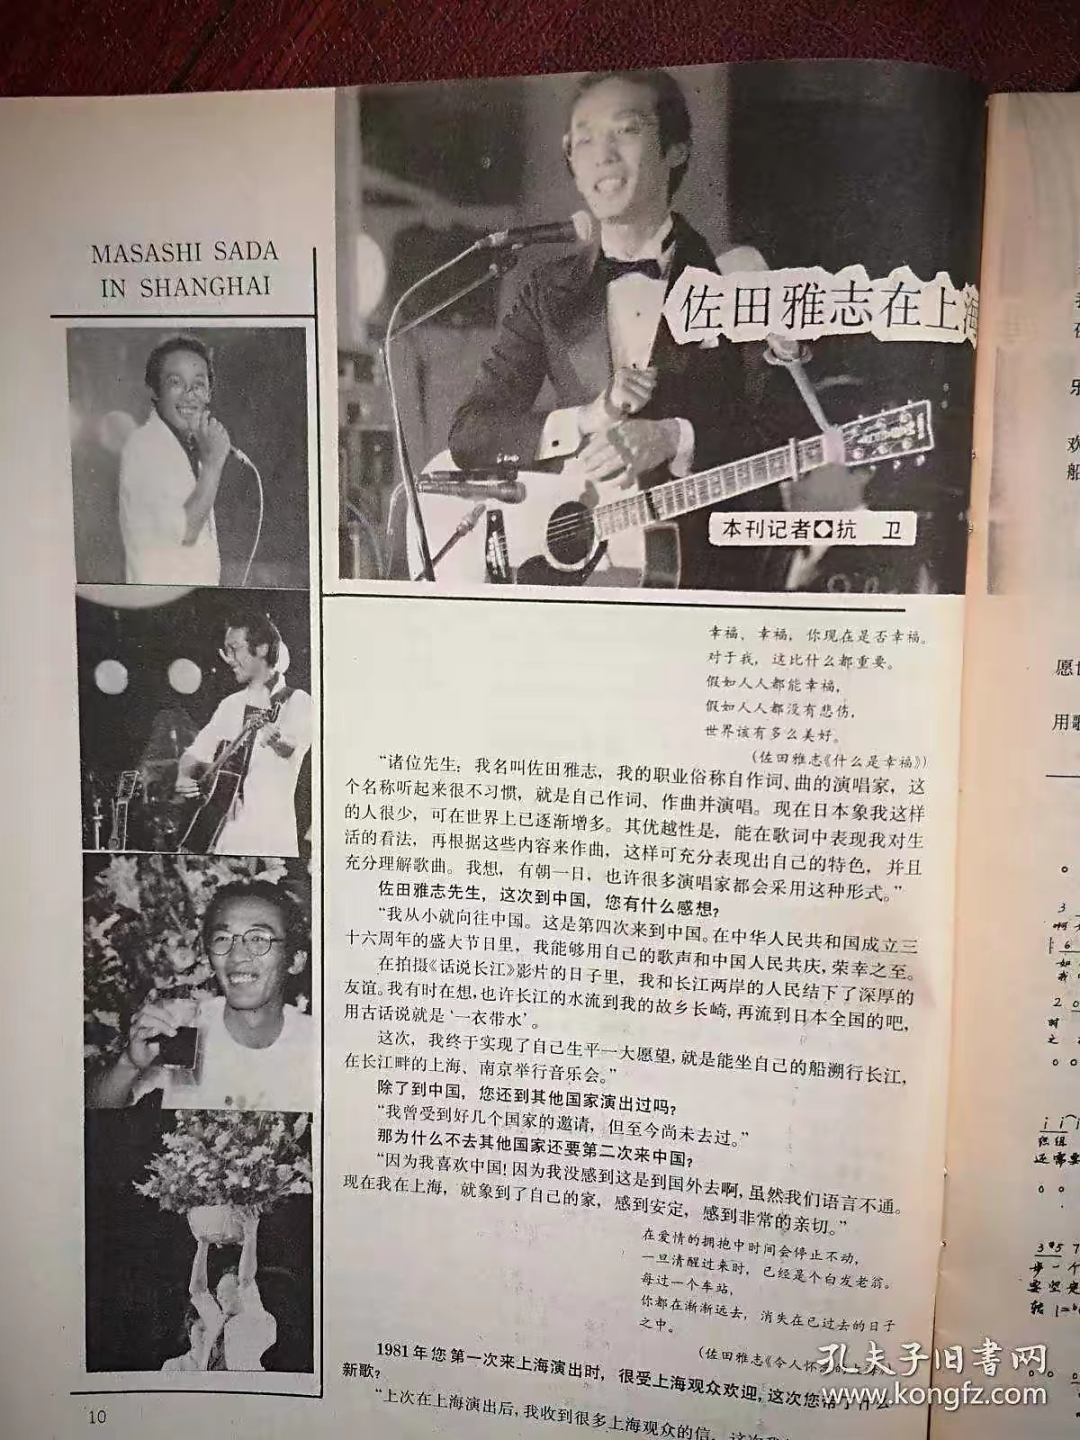 MASASHI SADA
IN SHANGHAI
佐田雅志在上海
本刊记者◆抗 卫
幸福、幸福，你现在是否幸福。
对于我，这比什么都重要。
假如人人都能幸福，
假如人人都没有悲伤，
世界该有多么美好。
(佐田雅志《什么是幸福》)
“诸位先生：我名叫佐田雅志，我的职业俗称自作词、曲的演唱家，这
个名称听起来很不习惯，就是自己作词、作曲并演唱。现在日本象我这样
的人很少，可在世界上已逐渐增多。其优越性是，能在歌词中表现我对生
活的看法，再根据这些内容来作曲，这样可充分表现出自己的特色，并且
充分理解歌曲。我想，有朝一日，也许很多演唱家都会采用这种形式。”
佐田雅志先生，这次到中国，您有什么感想？
“我从小就向往中国。这是第四次来到中国。在中华人民共和国成立三
十六周年的盛大节日里，我能够用自己的歌声和中国人民共庆，荣幸之至。
在拍摄《话说长江》影片的日子里，我和长江两岸的人民结下了深厚的
友谊。我有时在想，也许长江的水流到我的故乡长崎，再流到日本全国的吧，
用古话说就是‘一衣带水’。
这次，我终于实现了自己生平一大愿望，就是能坐自己的船溯行长江，
在长江畔的上海、南京举行音乐会。”
除了到中国，您还到其他国家演出过吗？
“我曾受到好几个国家的邀请，但至今尚未去过。”
那为什么不去其他国家还要第二次来中国？
“因为我喜欢中国！因为我没感到这是到国外去啊，虽然我们语言不通。
现在我在上海，就象到了自己的家，感到安定，感到非常的亲切。”
在爱情的拥抱中时间会停止不动，
一旦清醒过来时，已经是个白发老翁。
每过一个车站，
你都在渐渐远去，消失在已过去的日子
之中。
(佐田雅志《令人怀
1981年您第一次来上海演出时，很受上海观众欢迎，这次您带了什么
新歌？
“上次在上海演出后，我收到很多上海观众的信。
10
愿
用歌
欢
船
乐
孔夫子旧书网
www.kongfz.com